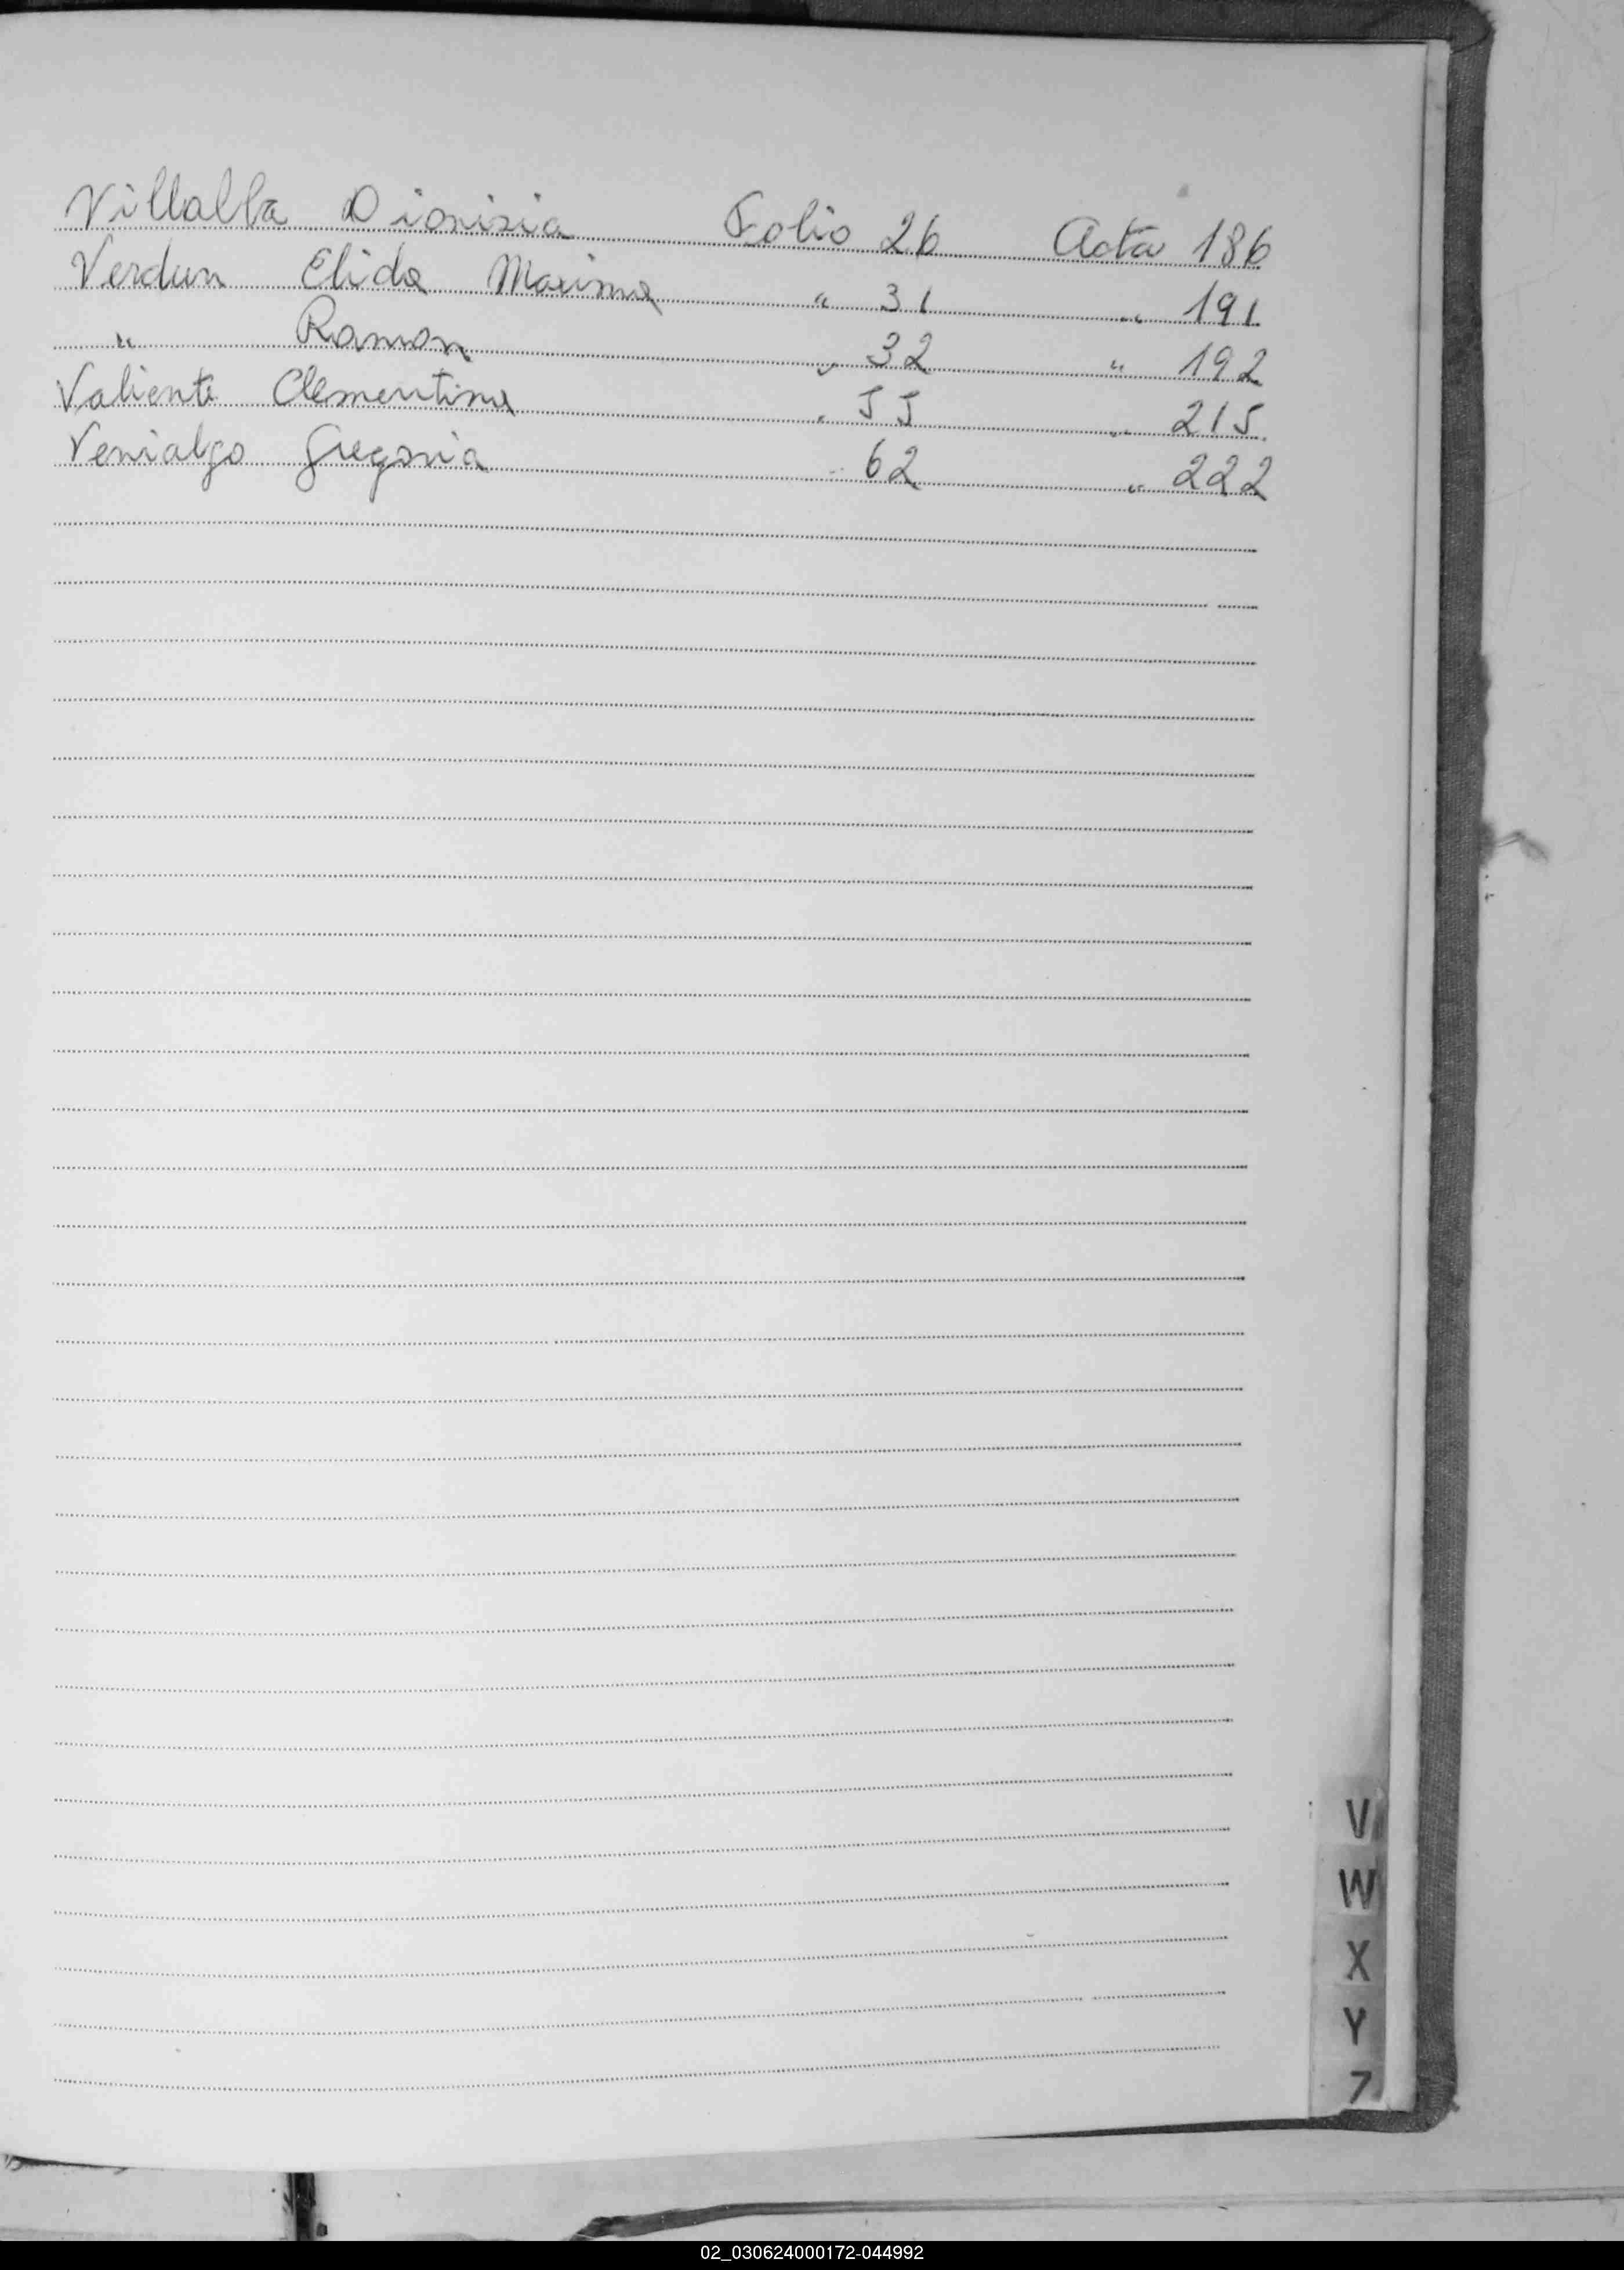 Villalba Dionisia Folio 26 Acta 186
Verdun Elida Maxima " 31 " 191
" Ramon " 32 " 192
Valiente Clementina " 55 " 215
Venialgo Gregoria " 62 " 222
V
W
X
Y
Z
02_030624000172-044992